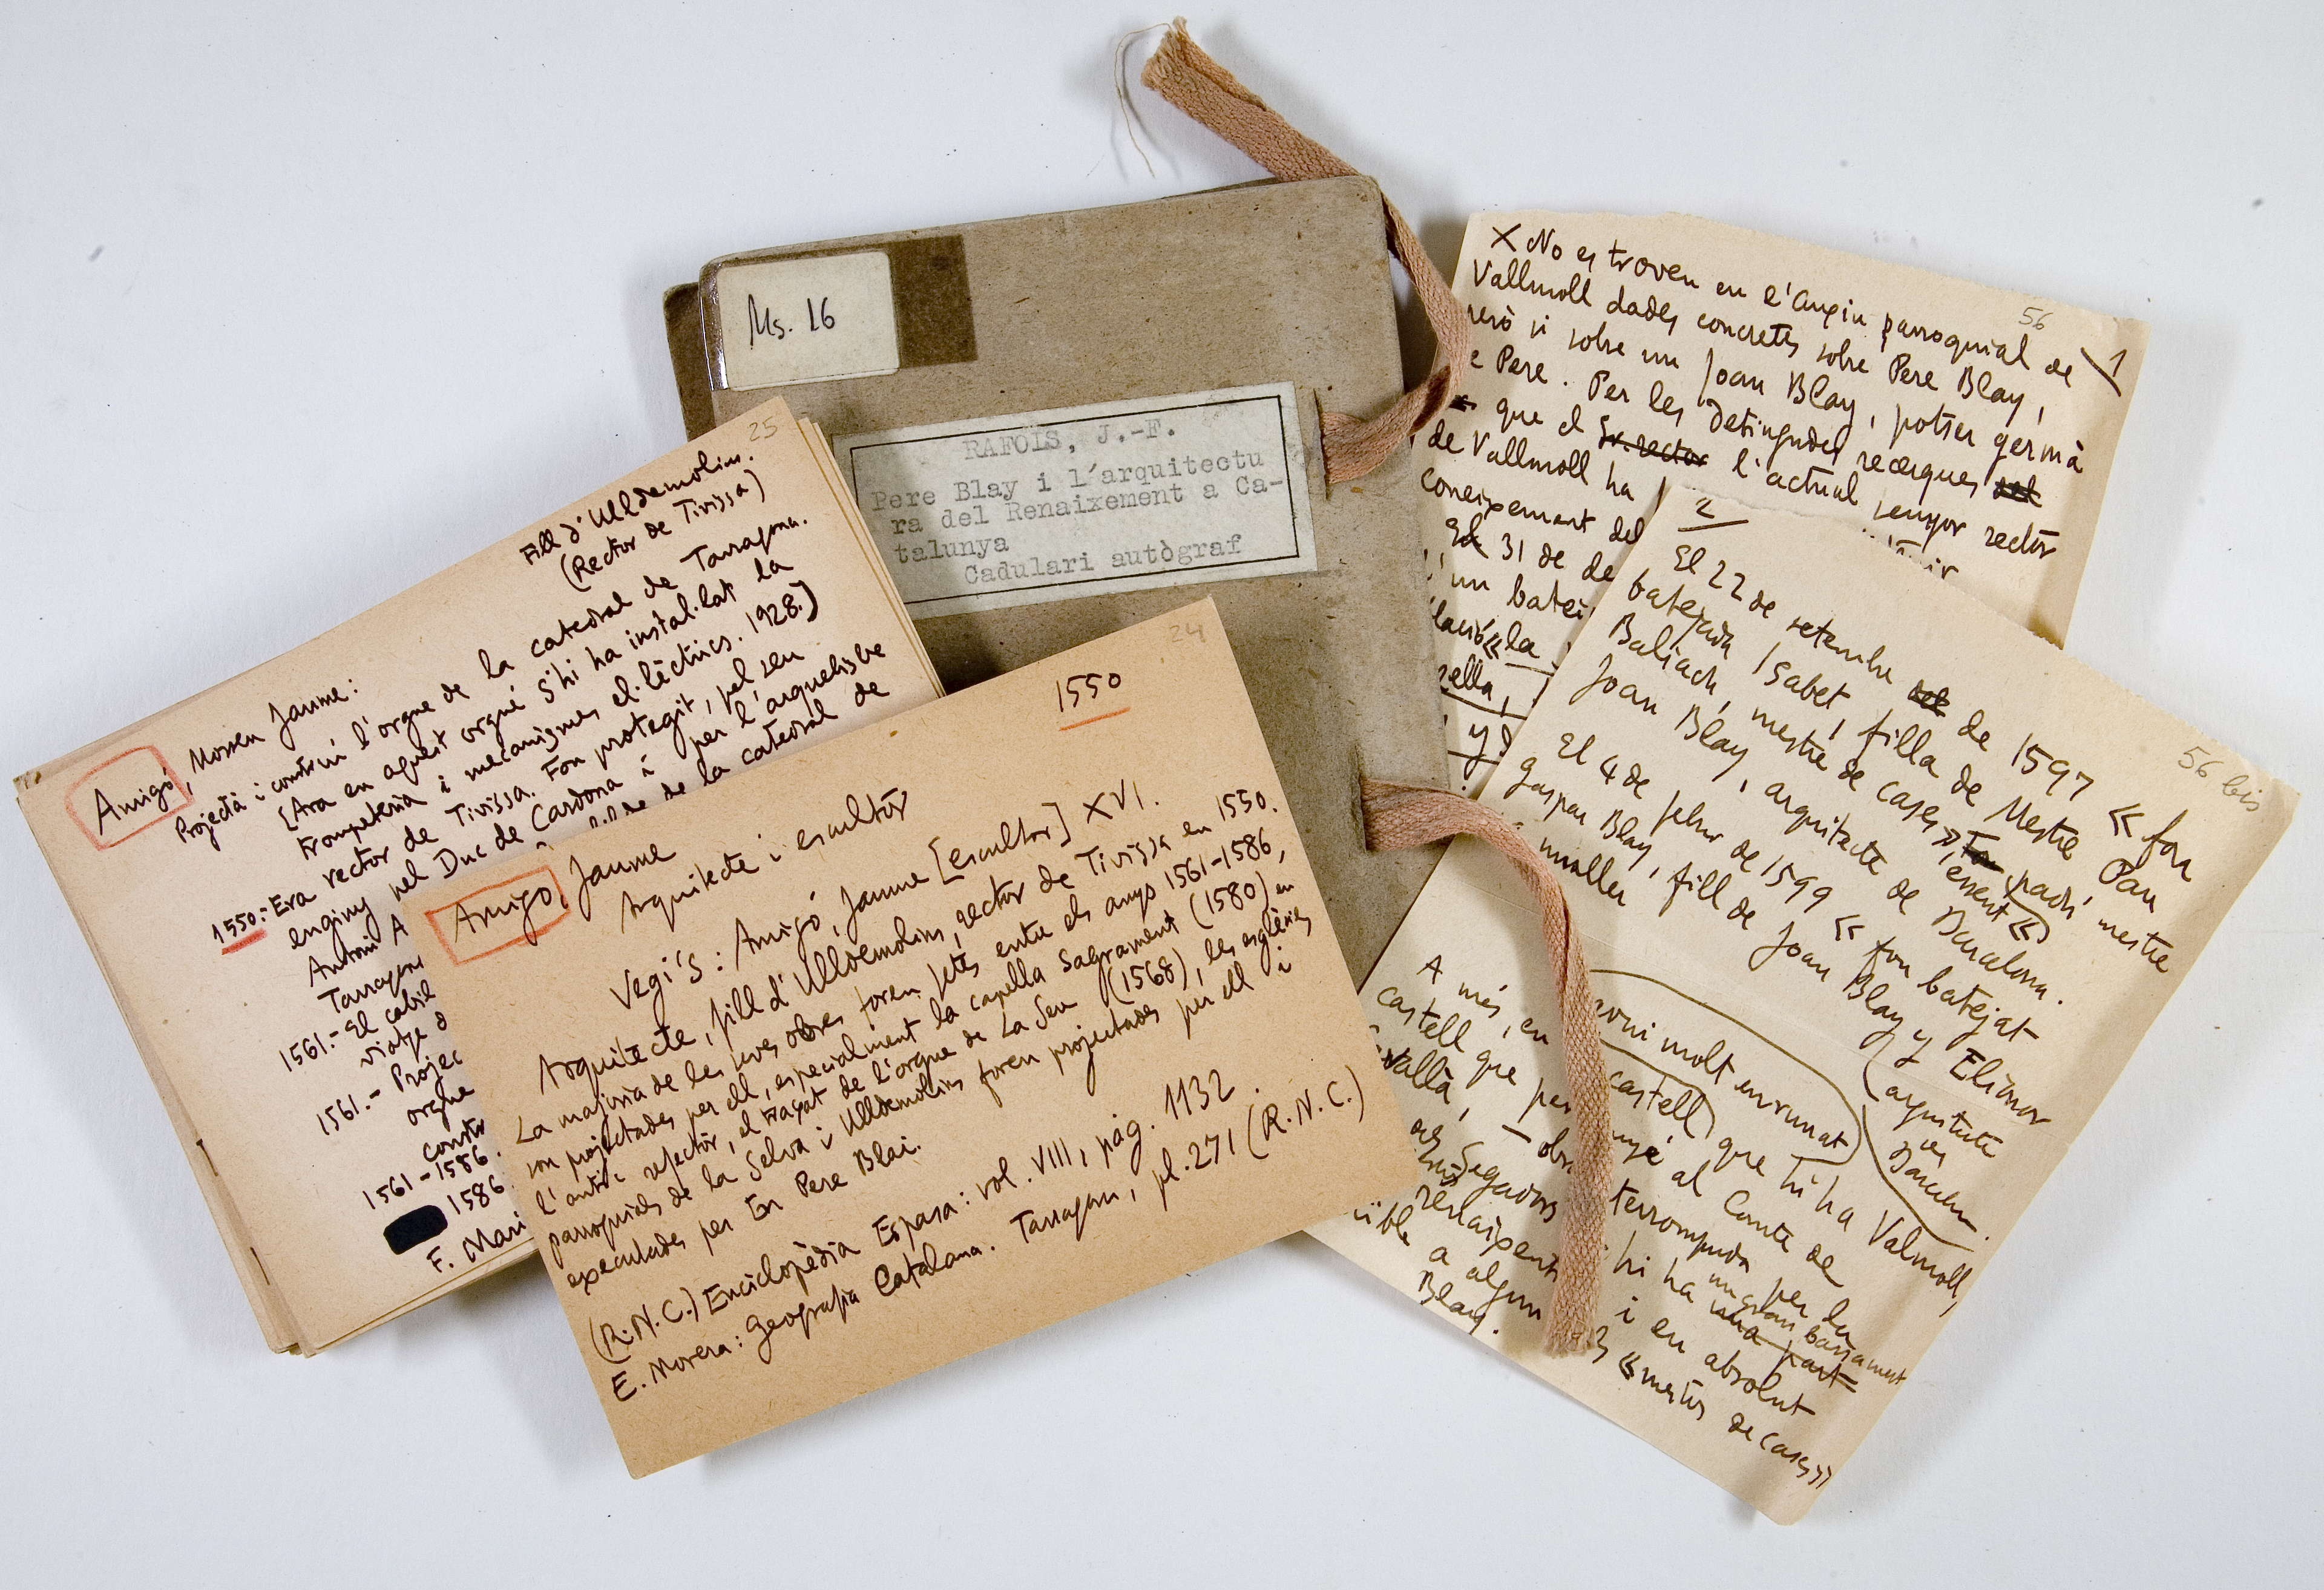 Ms. 16
RAFOLS, J.-F.
Pere Blay i l'arquitectu
ra del Renaixement a Ca-
talunya
Cadulari autògraf
25
Fill d'Ulldemolins.
(Rector de Tivissa)
Amigó, Mossen Jaume:
Projectà i construí l'orgue de la catedral de Tarragona.
[Ara en aquest orgue s'hi ha instal.lat la
trompeteria i mecanismes el.lèctrics. 1928.)
1550:- Era rector de Tivissa. Fou protegit, pel seu
enginy pel Duc de Cardona i per l'arquebisbe
Antoni A
de la catedral de
Tarragona
1561.- El cabil
viatge
1561.- Projec
orgue
constr
1561-1586.
1586
F. Mari
24
1550
Amigó, Jaume
Arquitecte i escultor
Vegi's: Amigó, Jaume [escultor] XVI.
Arquitecte, fill d'Ulldemolins, rector de Tivissa en 1550.
La majoria de les seves obres foren fetes entre els anys 1561-1586,
son projectades per ell, especialment la capella Sagrament (1580) en
l'antic refector, el traçat de l'orgue de La Seu (1568), les esglésies
parroquials de la Selva i Ulldemolins foren projectades per ell i
executades per En Pere Blai.
(R.N.C.) Enciclopèdia Espasa: vol. VIII, pàg. 1132.
E. Morera: Geografia Catalana. Tarragona, pl. 271 (R.N.C.)
56
1
X No es troven en l'Arxiu parroquial de
Vallmoll dades concretes sobre Pere Blay,
però si sobre un Joan Blay, potser germà
e Pere. Per les detingudes recerques del
que el Sr. rector l'actual senyor rector
de Vallmoll ha
coneixement del
El 31 de de
un batei
lació «la
sella,
y
56 bis
2
El 22 de setembre del de 1597 « fou
batejada Isabet, filla de Mestre Pau
Baliach, mestre de cases», essent « padrí mestre
Joan Blay, arquitecte de Barcelona.
El 4 de febrer de 1599 « fou batejat
Gaspar Blay, fill de Joan Blay y Elionor
muller
(arquitecte
de
Barcelon.
A més, en
molt enrunat
castell que per
castell) que hi ha Valmoll,
vallà,
obr
al Comte de
dels Segadors
terrompuda per la
renaixent
hi ha una part
un gran basament
ible
i en absolut
a algun
«mestres de cases»
Blay.